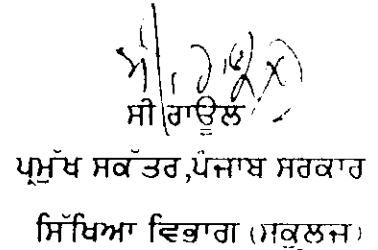 ਸੀ ਰਾਊਲ
ਪ੍ਰਮੁੱਖ ਸਕੱਤਰ,ਪੰਜਾਬ ਸਰਕਾਰ
ਸਿੱਖਿਆ ਵਿਭਾਗ (ਸਕੂਲਜ)